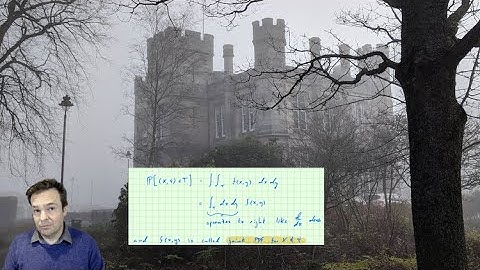 P[(X,Y) ∈ T] = ∫∫_T f(x,y) dx dy
= ∫_T dx dy f(x,y)
operator to right like d/dx does
and f(x,y) is called joint PDF for X & Y